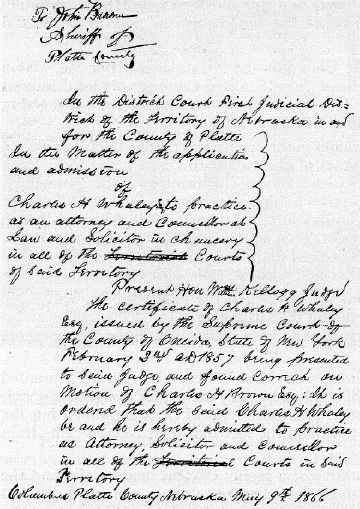 To John Browner
Sheriff of
Platte County
In the District Court First Judicial Dis=
trict of the Territory of Nebraska in and
for the County of Platte
In the Matter of the application
and admission
of
Charles H Whaley to practice
as an attorney and Councellor at
Law and Solicitor in chancery
in all of the Courts
of said Territory
Present Hon Wm Kellogg Judge
The certificate of Charles H Whaley
Esq. issued by the Supreme Court of
the County of Oneida, State of New York
February 2nd AD 1857 being presented
to said Judge and found correct on
Motion of Charles H Brown Esq: It is
ordered that the said Charles H Whaley
be and he is hereby admitted to practice
as Attorney Solicitor and Councellor
in all of the Courts in said
Territory
Columbus Platte County Nebraska May 9th 1866